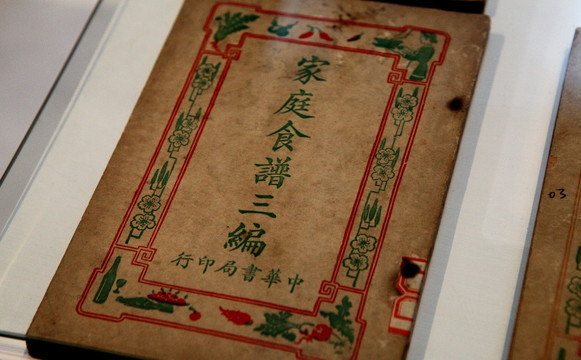 家庭食譜三編
中華書局印行
03